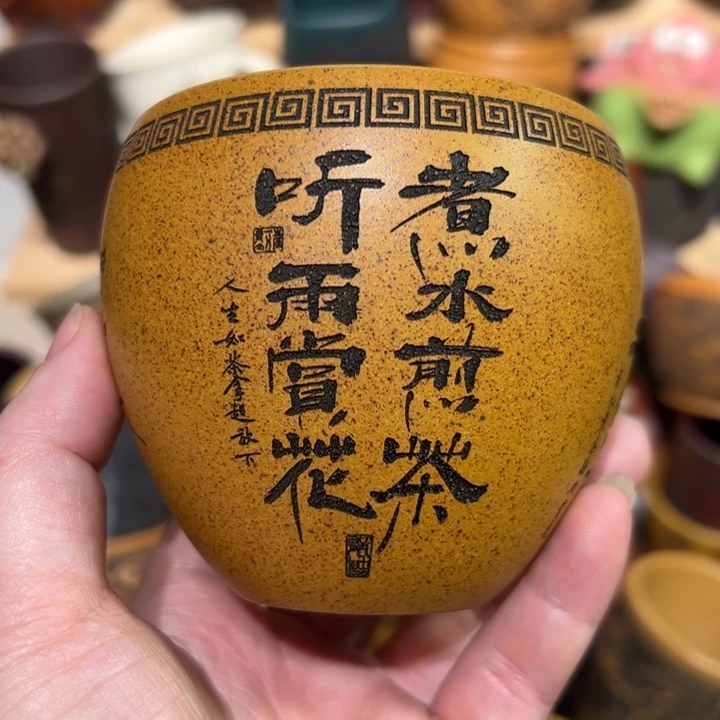 煮水煎茶
听雨赏花
人生如茶拿起放下